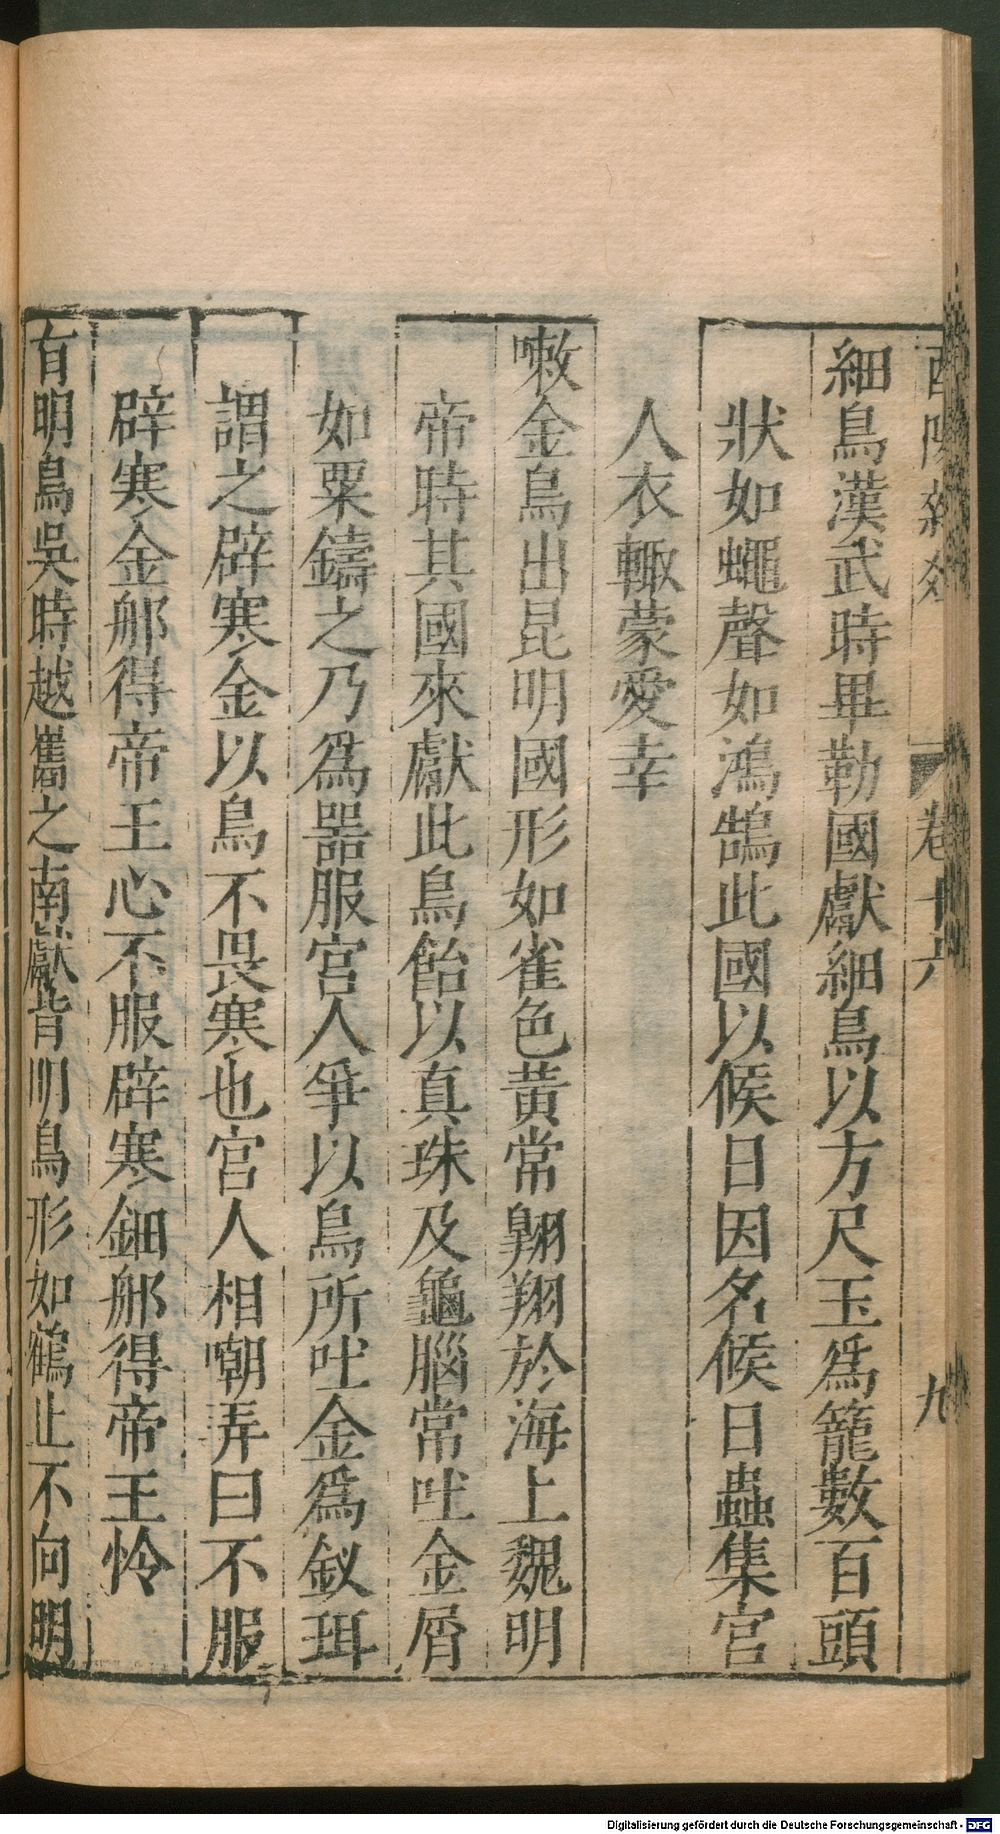 酉陽雜俎 卷十六 九
細鳥漢武時畢勒國獻細鳥以方尺玉爲籠數百頭
狀如蠅聲如鴻鵠此國以候日因名候日蟲集宮
人衣輙蒙愛幸
嗽金鳥出昆明國形如雀色黃常翱翔於海上魏明
帝時其國來獻此鳥飴以真珠及龜腦常吐金屑
如粟鑄之乃爲器服宮人爭以鳥所吐金爲釵珥
謂之辟寒金以鳥不畏寒也宮人相嘲弄曰不服
辟寒金郍得帝王心不服辟寒鈿郍得帝王怜
有明鳥吳時越嶲之南獻背明鳥形如鶴止不向明
Digitalisierung gefördert durch die Deutsche Forschungsgemeinschaft - DFG